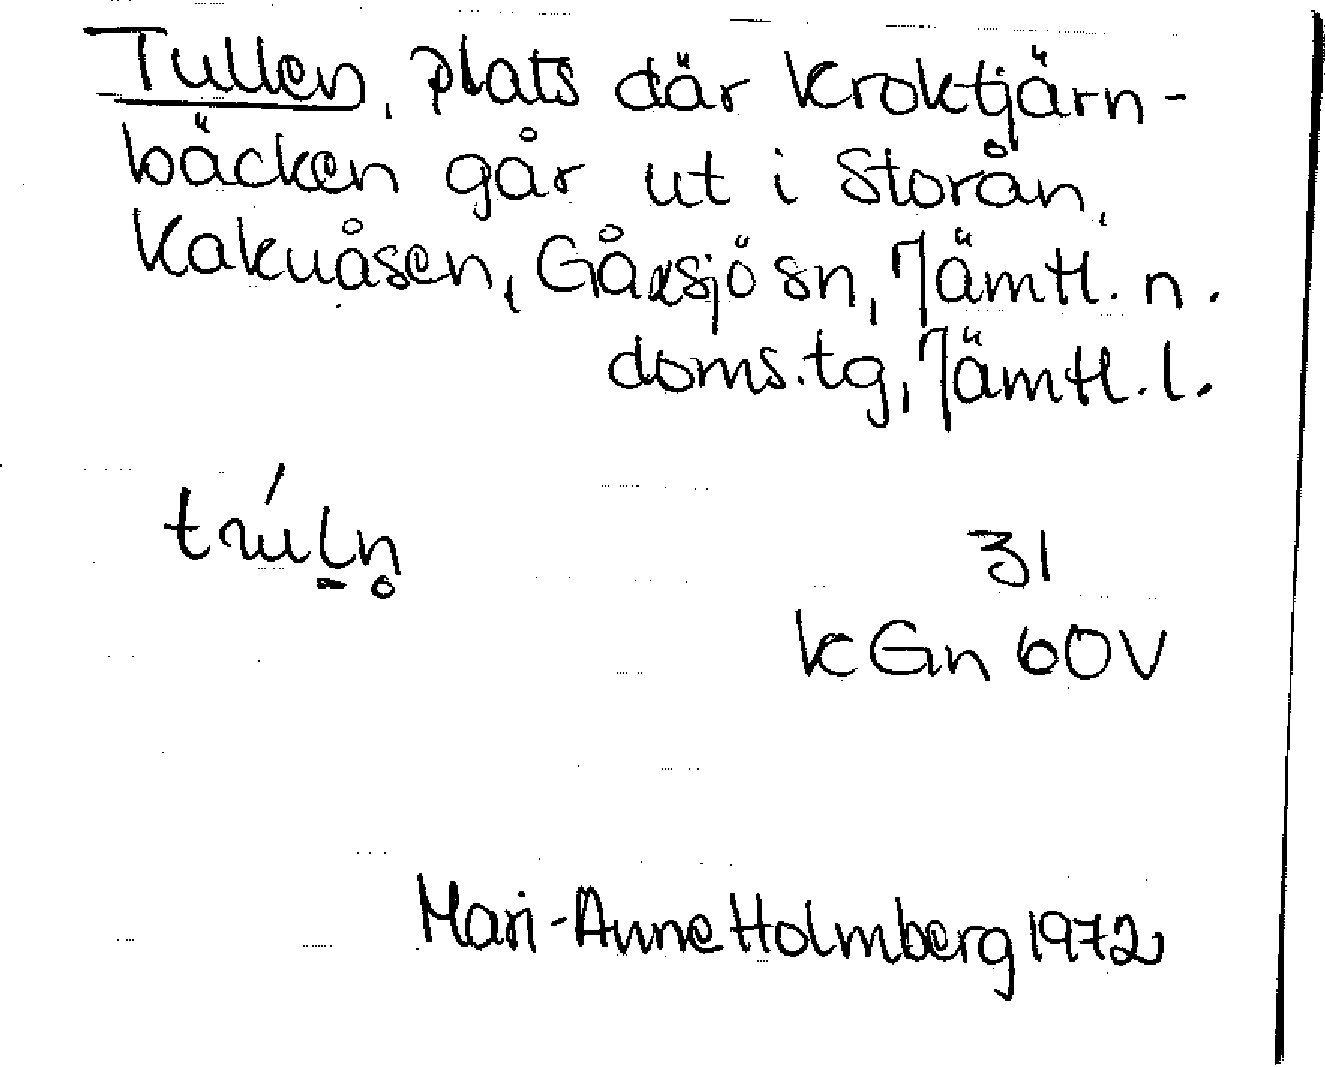 Tullen, plats där Kroktjärn-
bäcken går ut i Storån,
Kakuåsen, Gåxsjö sn, Jämtl. n.
doms.tg, Jämtl. l.
31
k Gn 60V
Mari-Anne Holmberg 1972